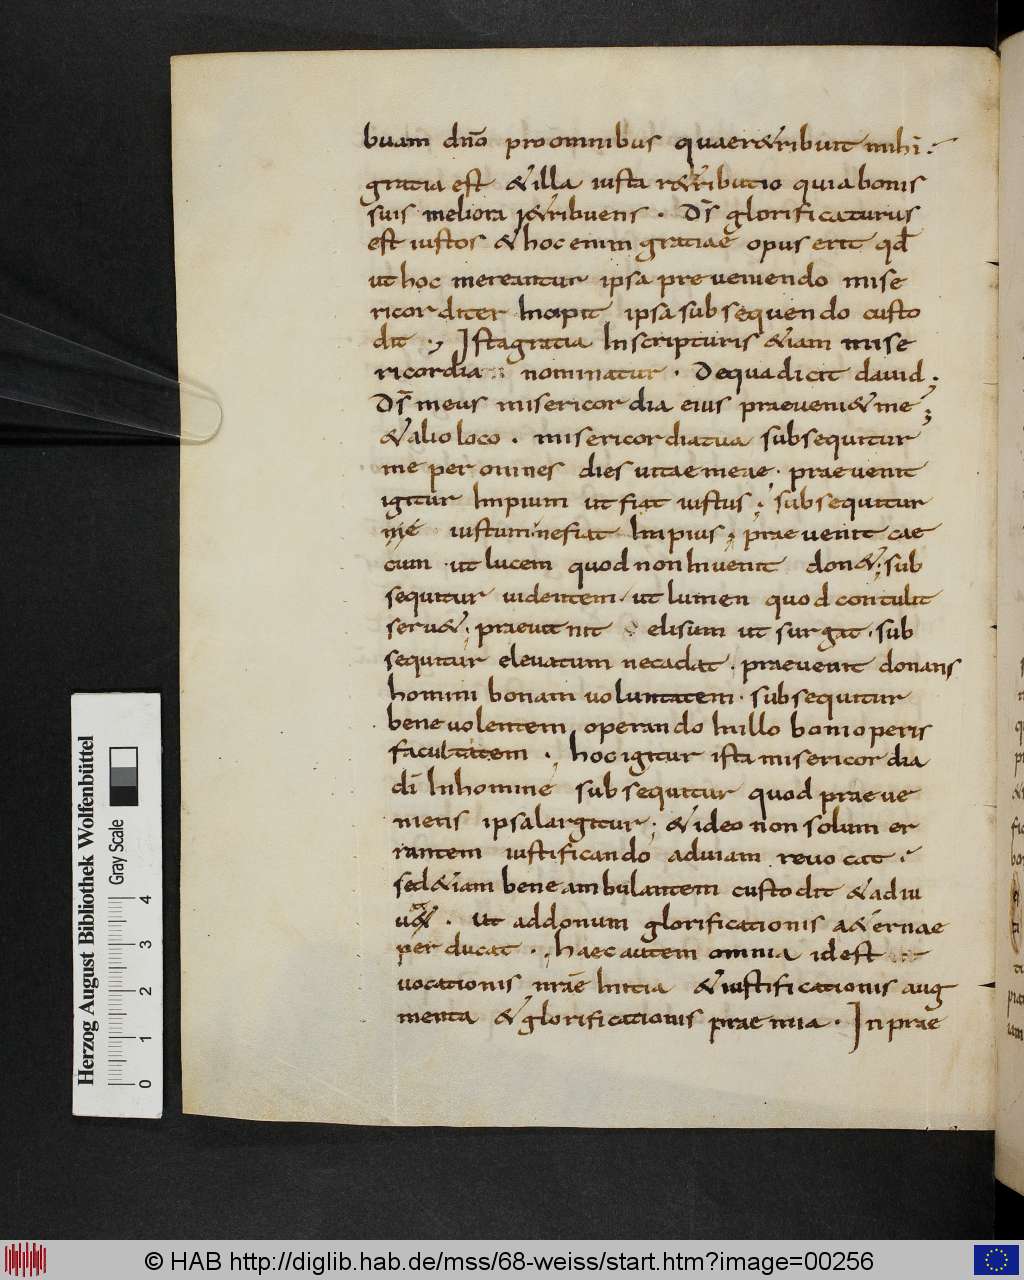 buam dn̄o pro omnibus quae r&ribuit mihi·
gratia est & illa iusta r&ributio quia bonis
suis meliora r&ribuens · Ds̄ glorificaturus
est iustos & hoc enim gratiae opus erit qđ
ut hoc mereantur ipsa preveniendo mise
ricorditer Incipit ipsa subsequendo custo
dit · Ista gratia In scripturis &iam mise
ricordia nominatur · De qua dicit david;
Ds̄ meus misericordia eius praeveni& me;
& alio loco · misericordia tua subsequitur
me per omnes dies vitae meae · praevenit
igitur Impium ut fiat iustus; subsequitur
iustum ne fiat Impius; praevenit cae
cum ut lucem quod non Invenit don&; sub
sequitur videntem · ut lumen quod contulit
serv&; praevenit elisum ut surgat · sub
sequitur elevatum ne cadat · praevenit donans
homini bonam voluntatem · subsequitur
benevolentem operando In illo boni operis
facultatem · hoc igitur ista misericordia
dī In homine subsequitur quod praeve
niens ipsa largitur; & ideo non solum er
rantem iustificando ad viam revocat ·
sed &iam bene ambulantem custodit & adiu
ut ad donum glorificationis a&ernae
perducat · haec autem omnia id est
vocationis nr̄ae Initia & iustificationis aug
menta & glorificationis praemia · In prae
Herzog August Bibliothek Wolfenbüttel
Gray Scale
0 1 2 3 4
© HAB http://diglib.hab.de/mss/68-weiss/start.htm?image=00256